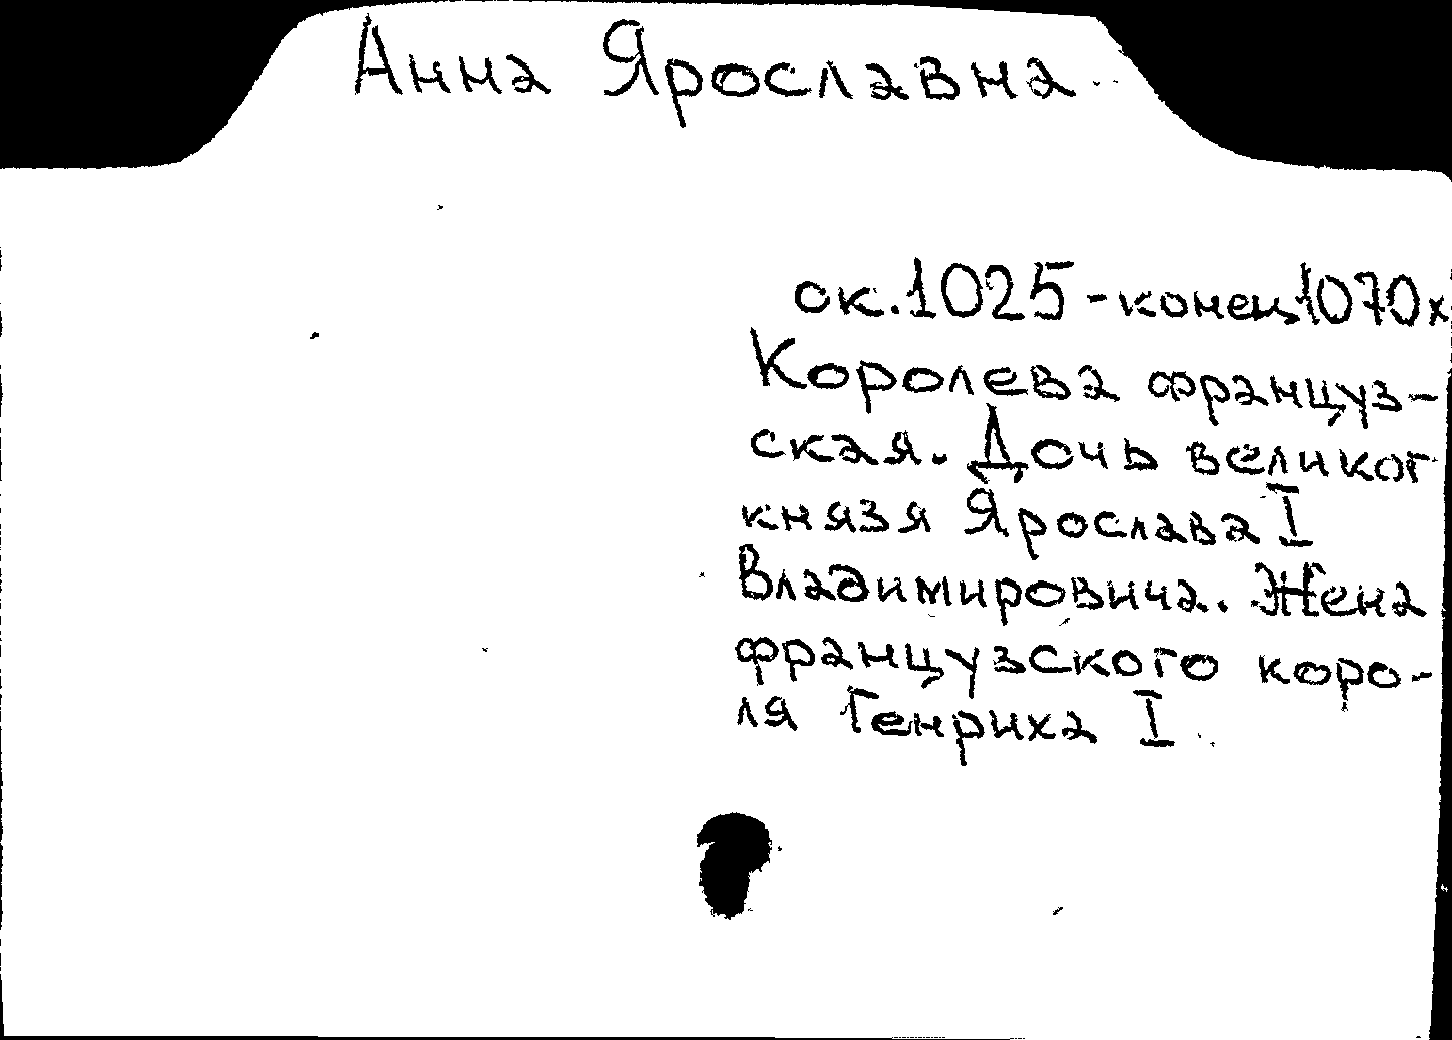 Анна Ярославна
ок. 1025 - конец 1070х
Королева француз-
ская. Дочь великог
князя Ярослава I
Владимировича. Жена
французского коро-
ля Генриха I